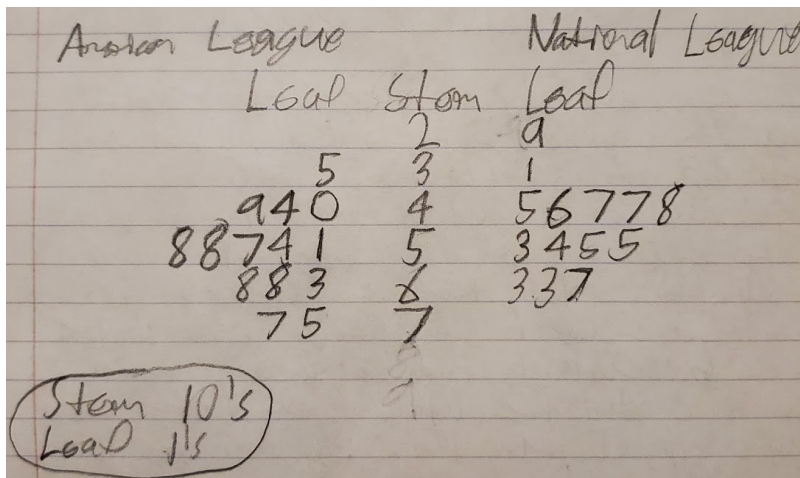 American League National League
Leaf Stem Leaf
2 9
5 3 1
940 4 56778
88741 5 3455
883 6 337
75 7
Stem 10's
Leaf 1's